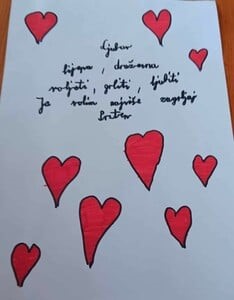 Ljubav
lijepa, dražesna
voljeti, grliti, ljubiti
Ja volim najviše zagrljaj
Sretan